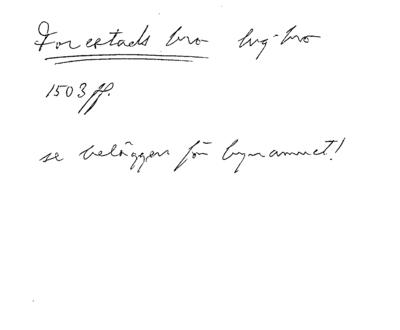 Forestads bro lvg-bro
1503 ff.
se beläggen för bynamnet!